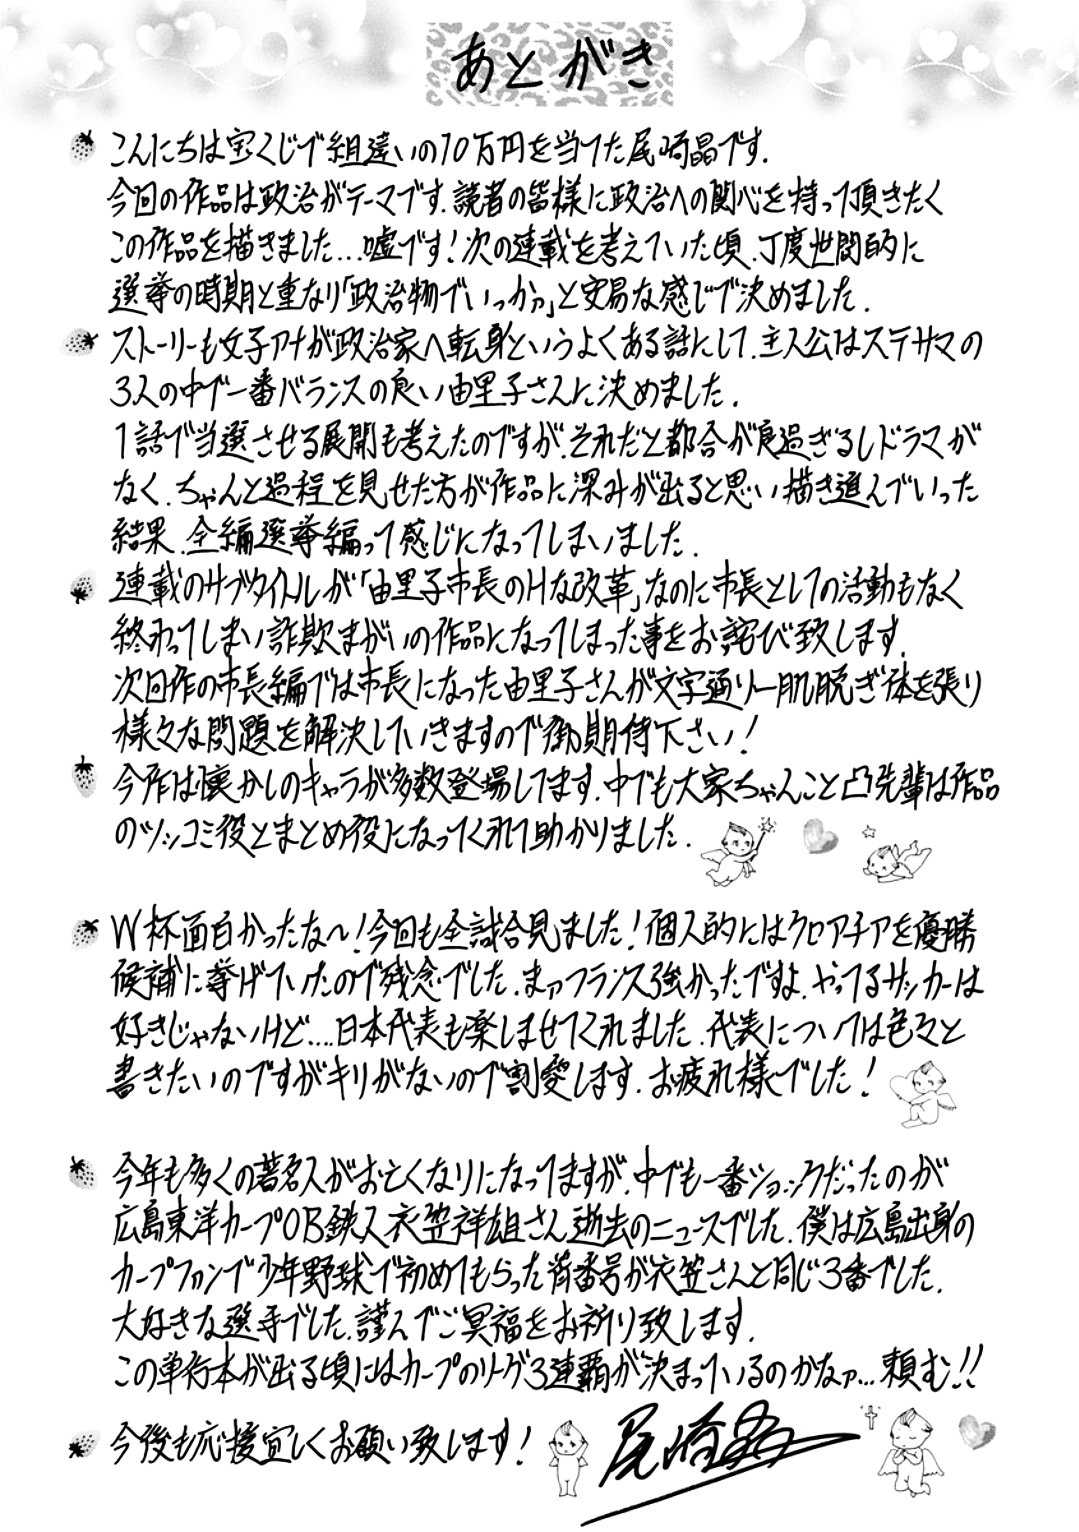 あとがき
こんにちは宝くじで組違いの10万円を当てた尾崎晶です.
今回の作品は政治がテーマです.読者の皆様に政治への関心を持って頂きたく
この作品を描きました…嘘です!次の連載を考えていた頃.丁度世間的に
選挙の時期と重なり「政治物でいっか」と安易な感じで決めました.
ストーリーも女子アナが政治家へ転身というよくある話にして.主人公はステサマの
3人の中で一番バランスの良い由里子さんに決めました.
1話で当選させる展開も考えたのですが.それだと都合が良過ぎるしドラマが
なく.ちゃんと過程を見せた方が作品に深みが出ると思い描き進んでいった
結果.全編選挙編って感じになってしまいました.
連載のサブタイトルが「由里子市長のHな改革」なのに市長としての活動もなく
終わってしまい詐欺まがいの作品になってしまった事をお詫び致します.
次回作の市長編では市長になった由里子さんが文字通り一肌脱ぎ体を張り
様々な問題を解決していきますので御期待下さい!
今作は懐かしのキャラが多数登場してます.中でも大家ちゃんこと凸先輩は作品
のツッコミ役とまとめ役になってくれて助かりました.
W杯面白かったな〜!今回も全試合見ました!個人的にはクロアチアを優勝
候補に挙げていたので残念でした.まァフランス強かったですよ.やってるサッカーは
好きじゃないけど….日本代表も楽しませてくれました.代表については色々と
書きたいのですがキリがないので割愛します.お疲れ様でした!
今年も多くの著名人がお亡くなりになってますが.中でも一番ショックだったのが
広島東洋カープOB鉄人衣笠祥雄さん逝去のニュースでした.僕は広島出身の
カープファンで少年野球で初めてもらった背番号が衣笠さんと同じ3番でした.
大好きな選手でした.謹んでご冥福をお祈り致します.
この単行本が出る頃にはカープのリーグ3連覇が決まっているのかなァ…頼む!!
今後も応援宜しくお願い致します!
尾崎晶